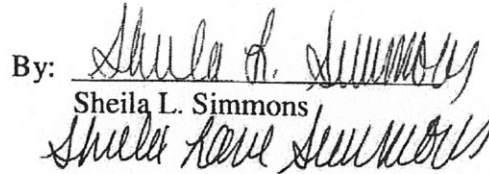 By: Sheila L. Simmons
Sheila L. Simmons
Sheila Lane Simmons